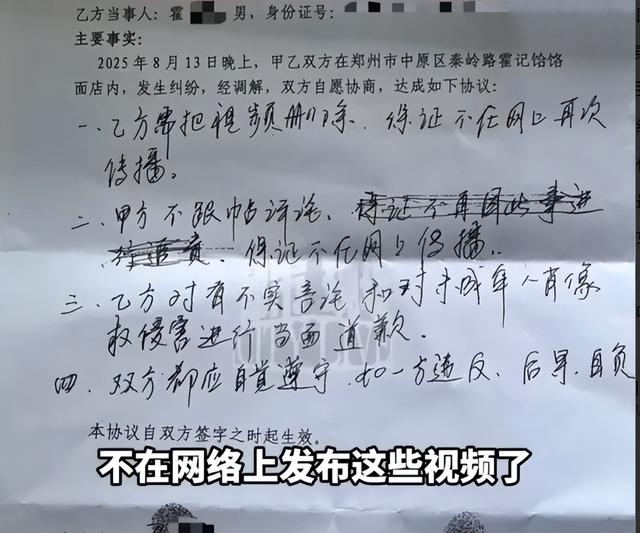 乙方当事人：霍 男，身份证号：
主要事实：
2025年8月13日晚上，甲乙双方在郑州市中原区秦岭路霍记饸饹
面店内，发生纠纷，经调解，双方自愿协商，达成如下协议：
一、乙方需把视频删除，保证不在网上再次
传播。
二、甲方不跟帖评论，保证不再因此事进
行追责，保证不在网上传播。
三、乙方对有不实言论和对未成年人肖像
权侵害进行当面道歉。
四、双方都应自觉遵守，如一方违反，后果自负
本协议自双方签字之时起生效。
不在网络上发布这些视频了